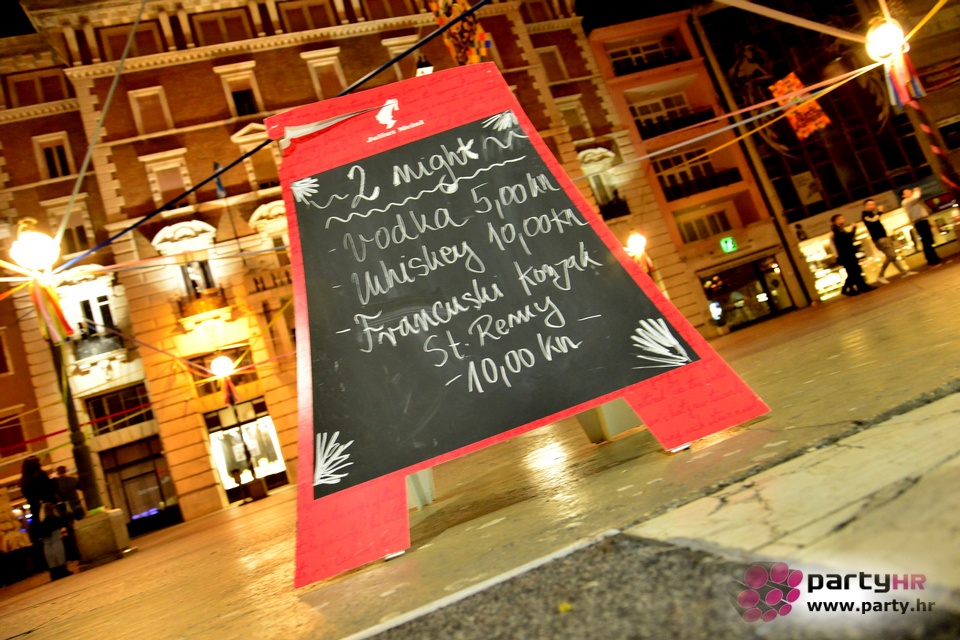 Julius Meinl
~ 2 night ~
- Vodka 5,00 kn
- Whiskey 10,00 kn
- Francuski Konjak
St. Remy -
- 10,00 kn
partyHR
www.party.hr